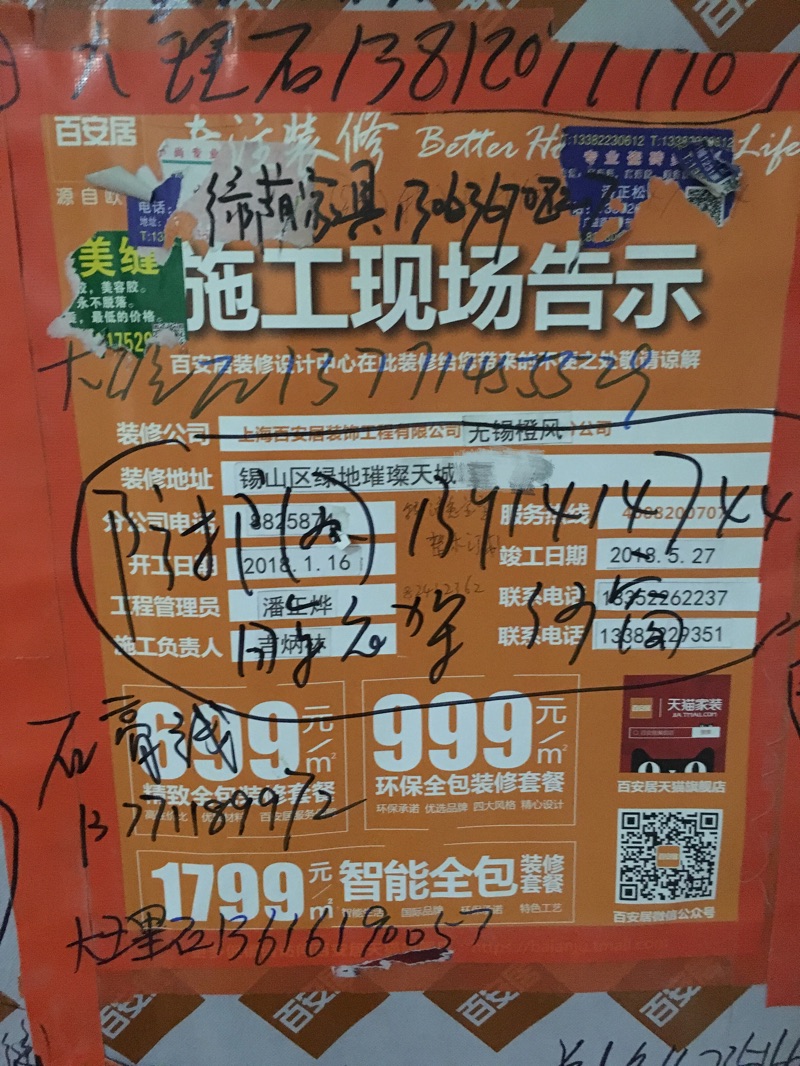 大理石
百安居
专注装修 Better
Life
T:13382230612
源自欧
电话:
地址:
绿荫家具
美缝
胶，美容胶。
永不脱落。
最低的价格。
施工现场告示
百安居装修设计中心在此装修给您带来的不便之处敬请谅解
大理石13771455529
装修公司 上海百安居装饰工程有限公司无锡橙风 公司
装修地址 锡山区绿地璀璨天城
分公司电话
服务热线 4008200707
防护门窗 1391414744
开工日期 2018.1.16
竣工日期 2018.5.27
工程管理员 潘正烨
联系电话 18352262237
施工负责人 联系电话
石膏线
13771189972
699元/m²
精致全包装修套餐
999元/m²
环保全包装修套餐
环保承诺 优选品牌 四大风格 精心设计
天猫家装
百安居天猫旗舰店
1799元/m²
智能全包装修套餐
国际品牌 环保承诺 特色工艺
百安居微信公众号
大理石13616190057
百安居 百安居 百安居